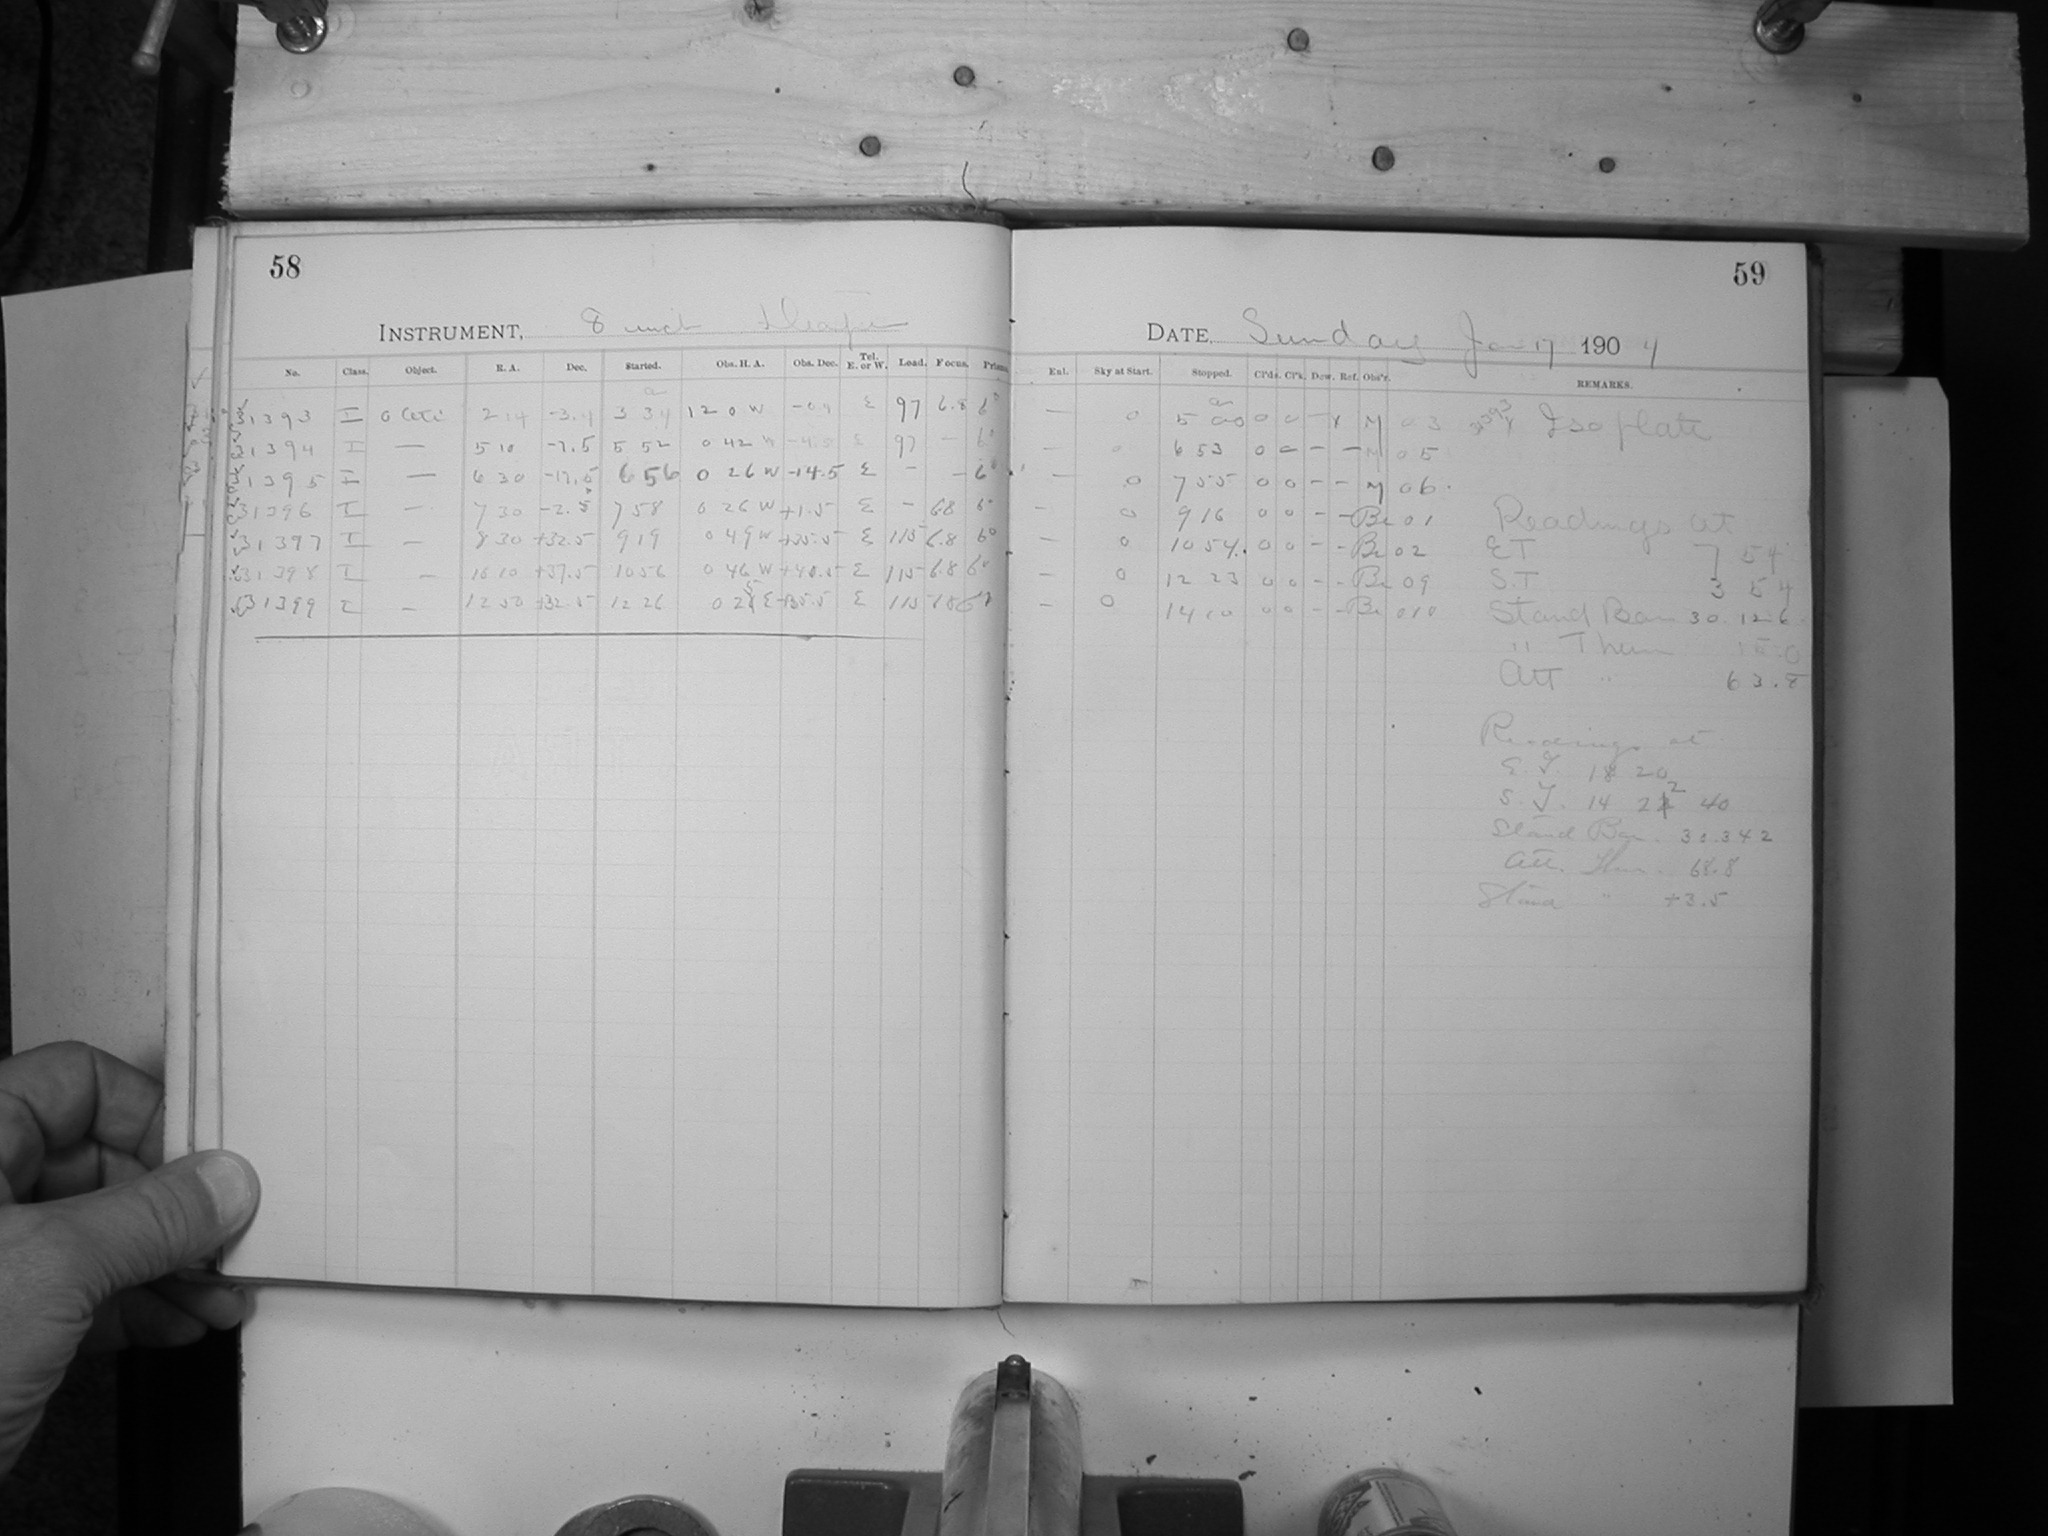 58
INSTRUMENT, 8 inch
No. Class. Object. R. A. Dec. Started. Obs. H. A. Obs. Dec. Tel. E. or W. Load. Focus. Prism
31393 I o Ceti 2 14 -3.4 3 34 1 20 W -0.9 E 97 6.8 6°
31394 I — 5 10 -7.5 5 52 0 42 W -4.5 E 97 — 6°
31395 I — 6 30 -17.5 6 56 0 26 W -14.5 E - - 6°
31396 I — 7 30 -2.5 7 58 0 26 W +1.5 E - 6.8 6°
31397 I — 8 30 +32.5 9 19 0 49 W +35.5 E 115 6.8 6°
31398 I — 10 10 +37.5 10 56 0 46 W +40.5 E 115 6.8 6°
31399 I — 12 50 +32.5 12 26 0 2 E +35.5 E 115
59
DATE Sunday Jan 17 1904
Enl. Sky at Start. Stopped. Cl'ds. Cl'k. Dew. Ref. Obs'r. REMARKS.
— 0 5 00 0 0 - M 03 Iso plate
— 0 6 53 0 - - - M 05
— 0 7 55 0 0 - - M 06.
— 0 9 16 0 0 - - Be 01 Readings at
— 0 10 54. 0 0 - - Be 02 ET 7 54
— 0 12 23 0 0 - - Be 09 S.T 3 54
— 0 14 10 0 0 - - Be 010 Stand Bar 30.126
" Therm
Att " 63.8
Readings at
E. T. 18 20
S. T. 14 22 40
Stand Bar. 30.342
Att. Ther. 68.8
Stand " +3.5